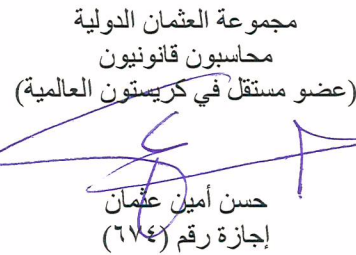 مجموعة العثمان الدولية
محاسبون قانونيون
(عضو مستقل في كريستون العالمية)
حسن أمين عثمان
إجازة رقم (٦٧٤)